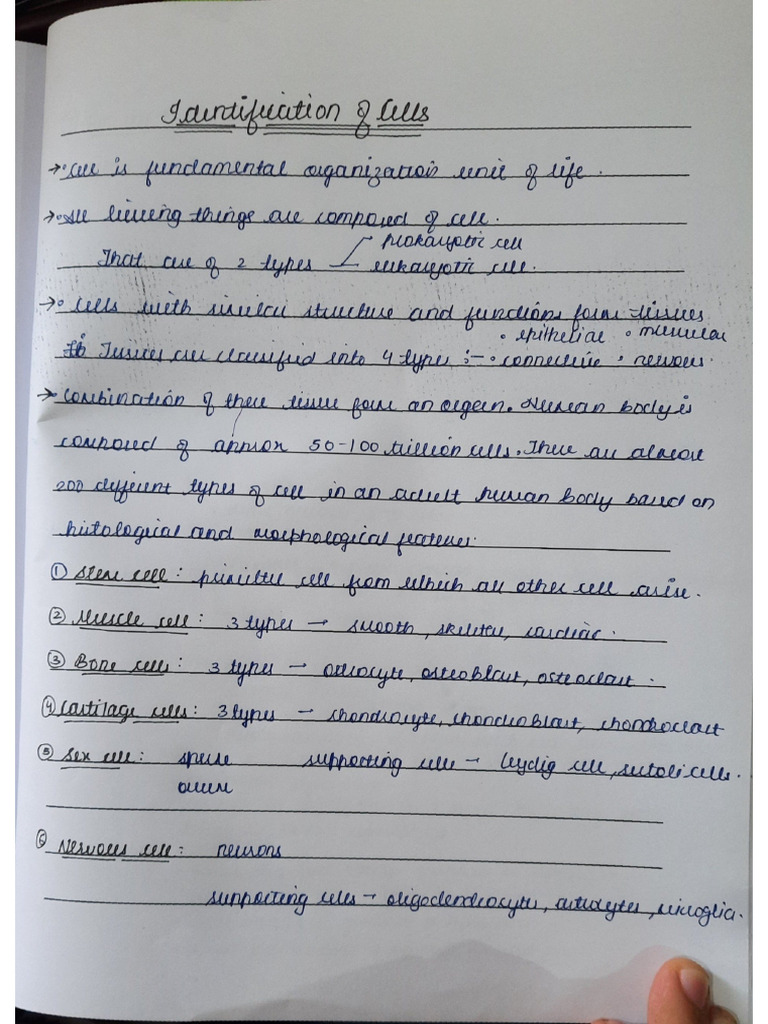 Identification of Cells
→ • Cell is fundamental organization unit of life.
→ • All living things are composed of cell.
prokaryotic cell
That are of 2 types
eukaryotic cell.
→ • Cells with similar structure and functions form tissues
• epitheliae • muscular
Tissues are classified into 4 types :- • connective • nervous.
→ • Combination of these tissue form an organ. Human body is
composed of approx 50-100 trillion cells. There are almost
200 different types of cell in an adult human body based on
histological and morphological features.
① Stem cell : primitive cell from which all other cell arise.
② Muscle cell : 3 types → smooth, skeletal, cardiac.
③ Bone cells : 3 types → osteocyte, osteoblast, osteoclast.
④ Cartilage cells : 3 types → chondrocyte, chondroblast, chondroclast
⑤ Sex cell : sperm supporting cells → leydig cell, sertoli cells.
ovum
⑥ Nervous cell : neurons
supporting cells → oligodendrocytes, astrocytes, microglia.